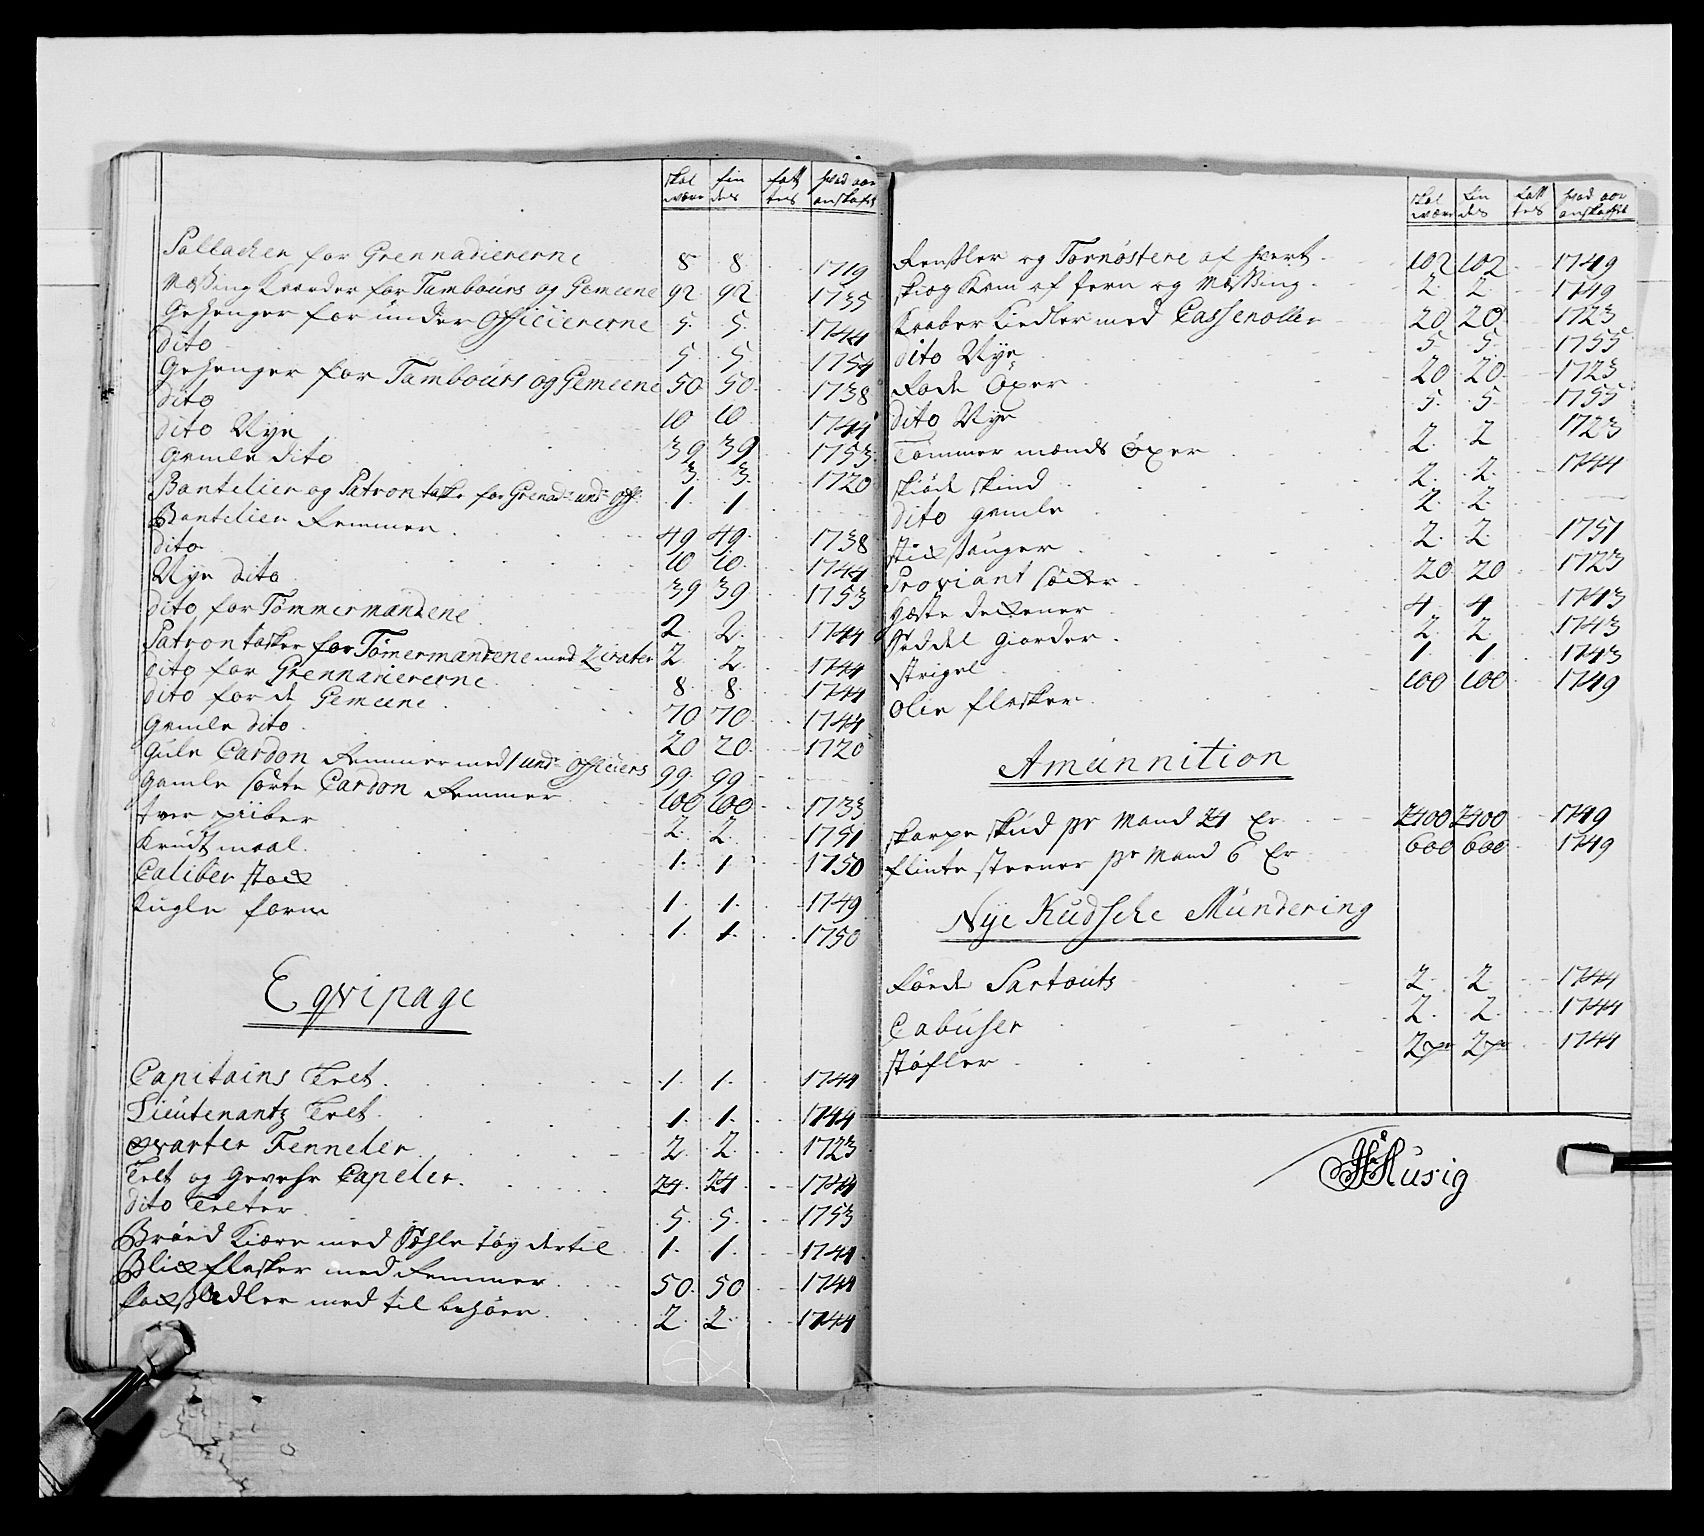 skal være | fin des | fatt tes | Hvad aar anskaffet
Pallacher for Grennadiererne 8 8 1719
Messing Kaarder for Tambours og Gemeene 92 92 1735
Gehenger for under Officiererne 5 5 1744
Dito 5 5 1754
Gehenger for Tambours og Gemeene 50 50 1738
Dito 10 10 1744
Dito Nye 39 39 1753
Gamle Dito 3 3 1720
Bantelier og Patrontaske for Grenad: und: Off: 1 1
Bantelier Remmer 49 49 1738
Dito 10 10 1744
Nye Dito 39 39 1753
Dito for Tømmermændene 2 2 1744
Patrontasker for Tømermændene med Zirater 2 2 1744
Dito for Grennadiererne 8 8 1744
Dito for de Gemeene 70 70 1744
Gamle Dito 20 20 1720
Gule Cardon Remmer med 1 und: Officiers 99 99
Gamle sorte Cardon Remmer 100 100 1733
Tver piiber 2 2 1751
Krudt maal 1 1 1750
Caliber stock 1 1 1749
Kugle form 1 1 1750
Eqvipage
Capitains Telt 1 1 1744
Lieutenantz Telt 1 1 1744
Qvarter Fenneler 2 2 1723
Telt og Gevehr Capeler 24 24 1744
Dito Telter 5 5 1753
Brød Kiære med Sehle tøy dertil 1 1 1744
Blick flasker med Remmer 50 50 1744
Packsadler med til behør 2 2 1744
skal være | fin des | fatt tes | Hvad aar anskaffet
Rensler og Tornøstere af hvert 102 102 1749
skiæg Kam af Horn og Messing 2 2 1749
Kaaber Kiedler med Casseroller 20 20 1723
Dito Nye 5 5 1755
Rode Øxer 20 20 1723
Dito Nye 5 5 1755
Tømmer mænds Øxer 2 2 1723
skiøde skind 2 2 1744
Dito gamle 2 2
stick stanger 2 2 1751
Proviant sæcker 20 20 1723
Heste Deckener 4 4 1743
Saddel Giorder 2 2 1743
strigel 1 1 1743
Olie flasker 100 100 1749
Amunnition
skarpe skud pr Mand 24 Er 2400 2400 1749
flinte steener pr Mand 6 Er 600 600 1749
Nye Kudsche Mundering
Røde Surtouts 2 2 1744
Cabuser 2 2 1744
støfler 2pr 2pr 1744
Husig